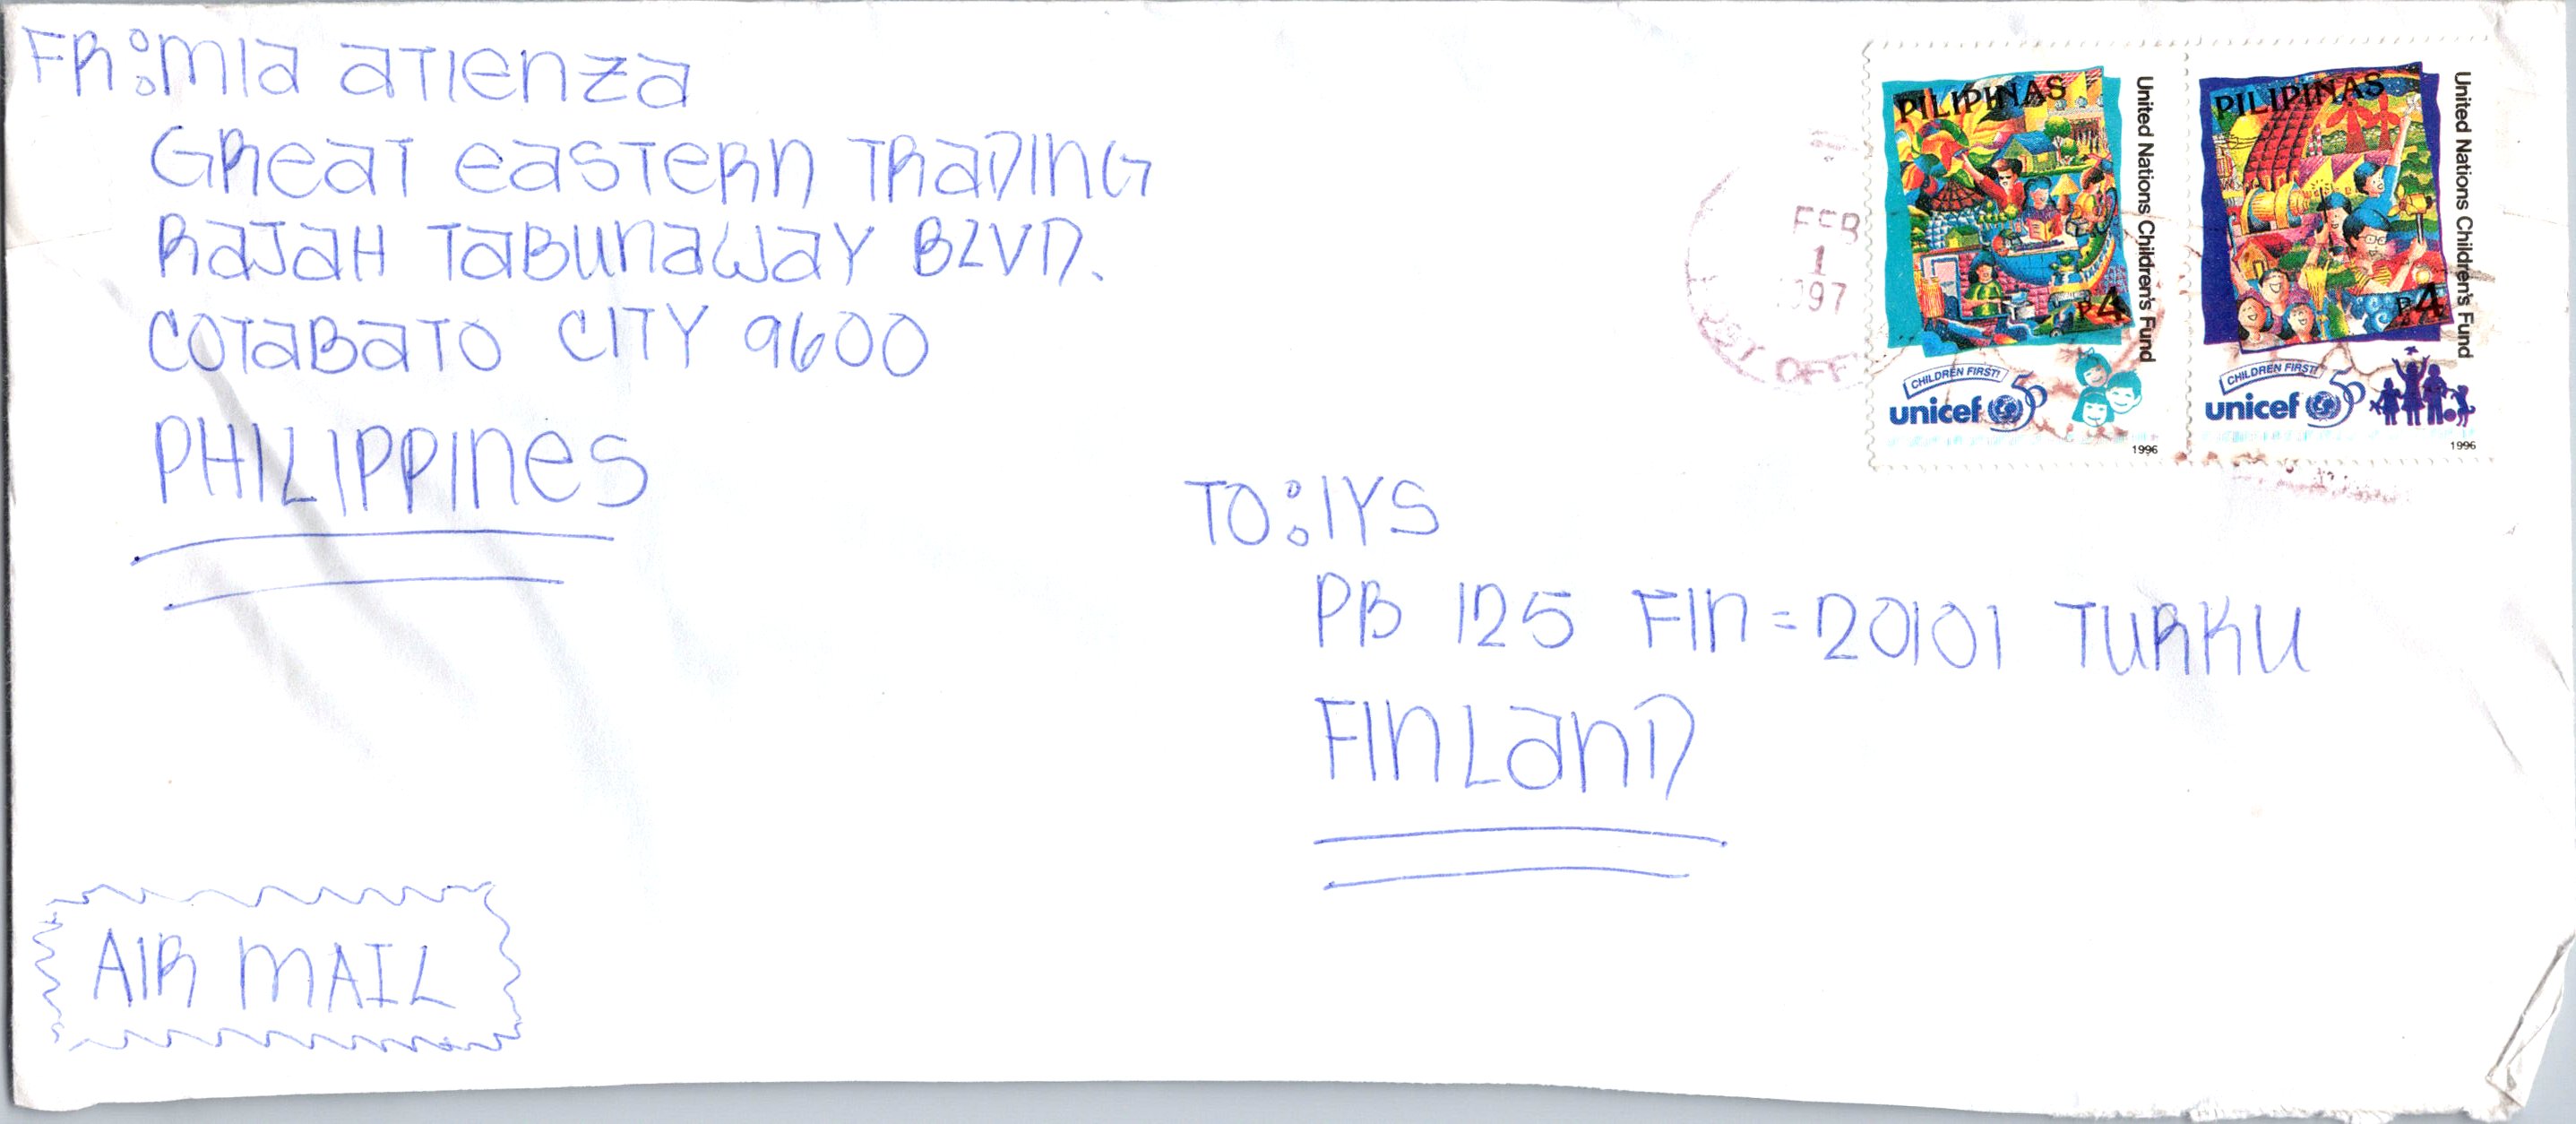 FR:MIA ATIENZA
GREAT EASTERN TRADING
RAJAH TABUNAWAY BLVD.
COTABATO CITY 9600
PHILIPPINES
PILIPINAS
United Nations Children's Fund
P4
CHILDREN FIRST!
unicef 50
1996
PILIPINAS
United Nations Children's Fund
P4
CHILDREN FIRST!
unicef 50
1996
FEB
1
TO:IYS
PB 125 FIN=20101 TURKU
FINLAND
AIR MAIL